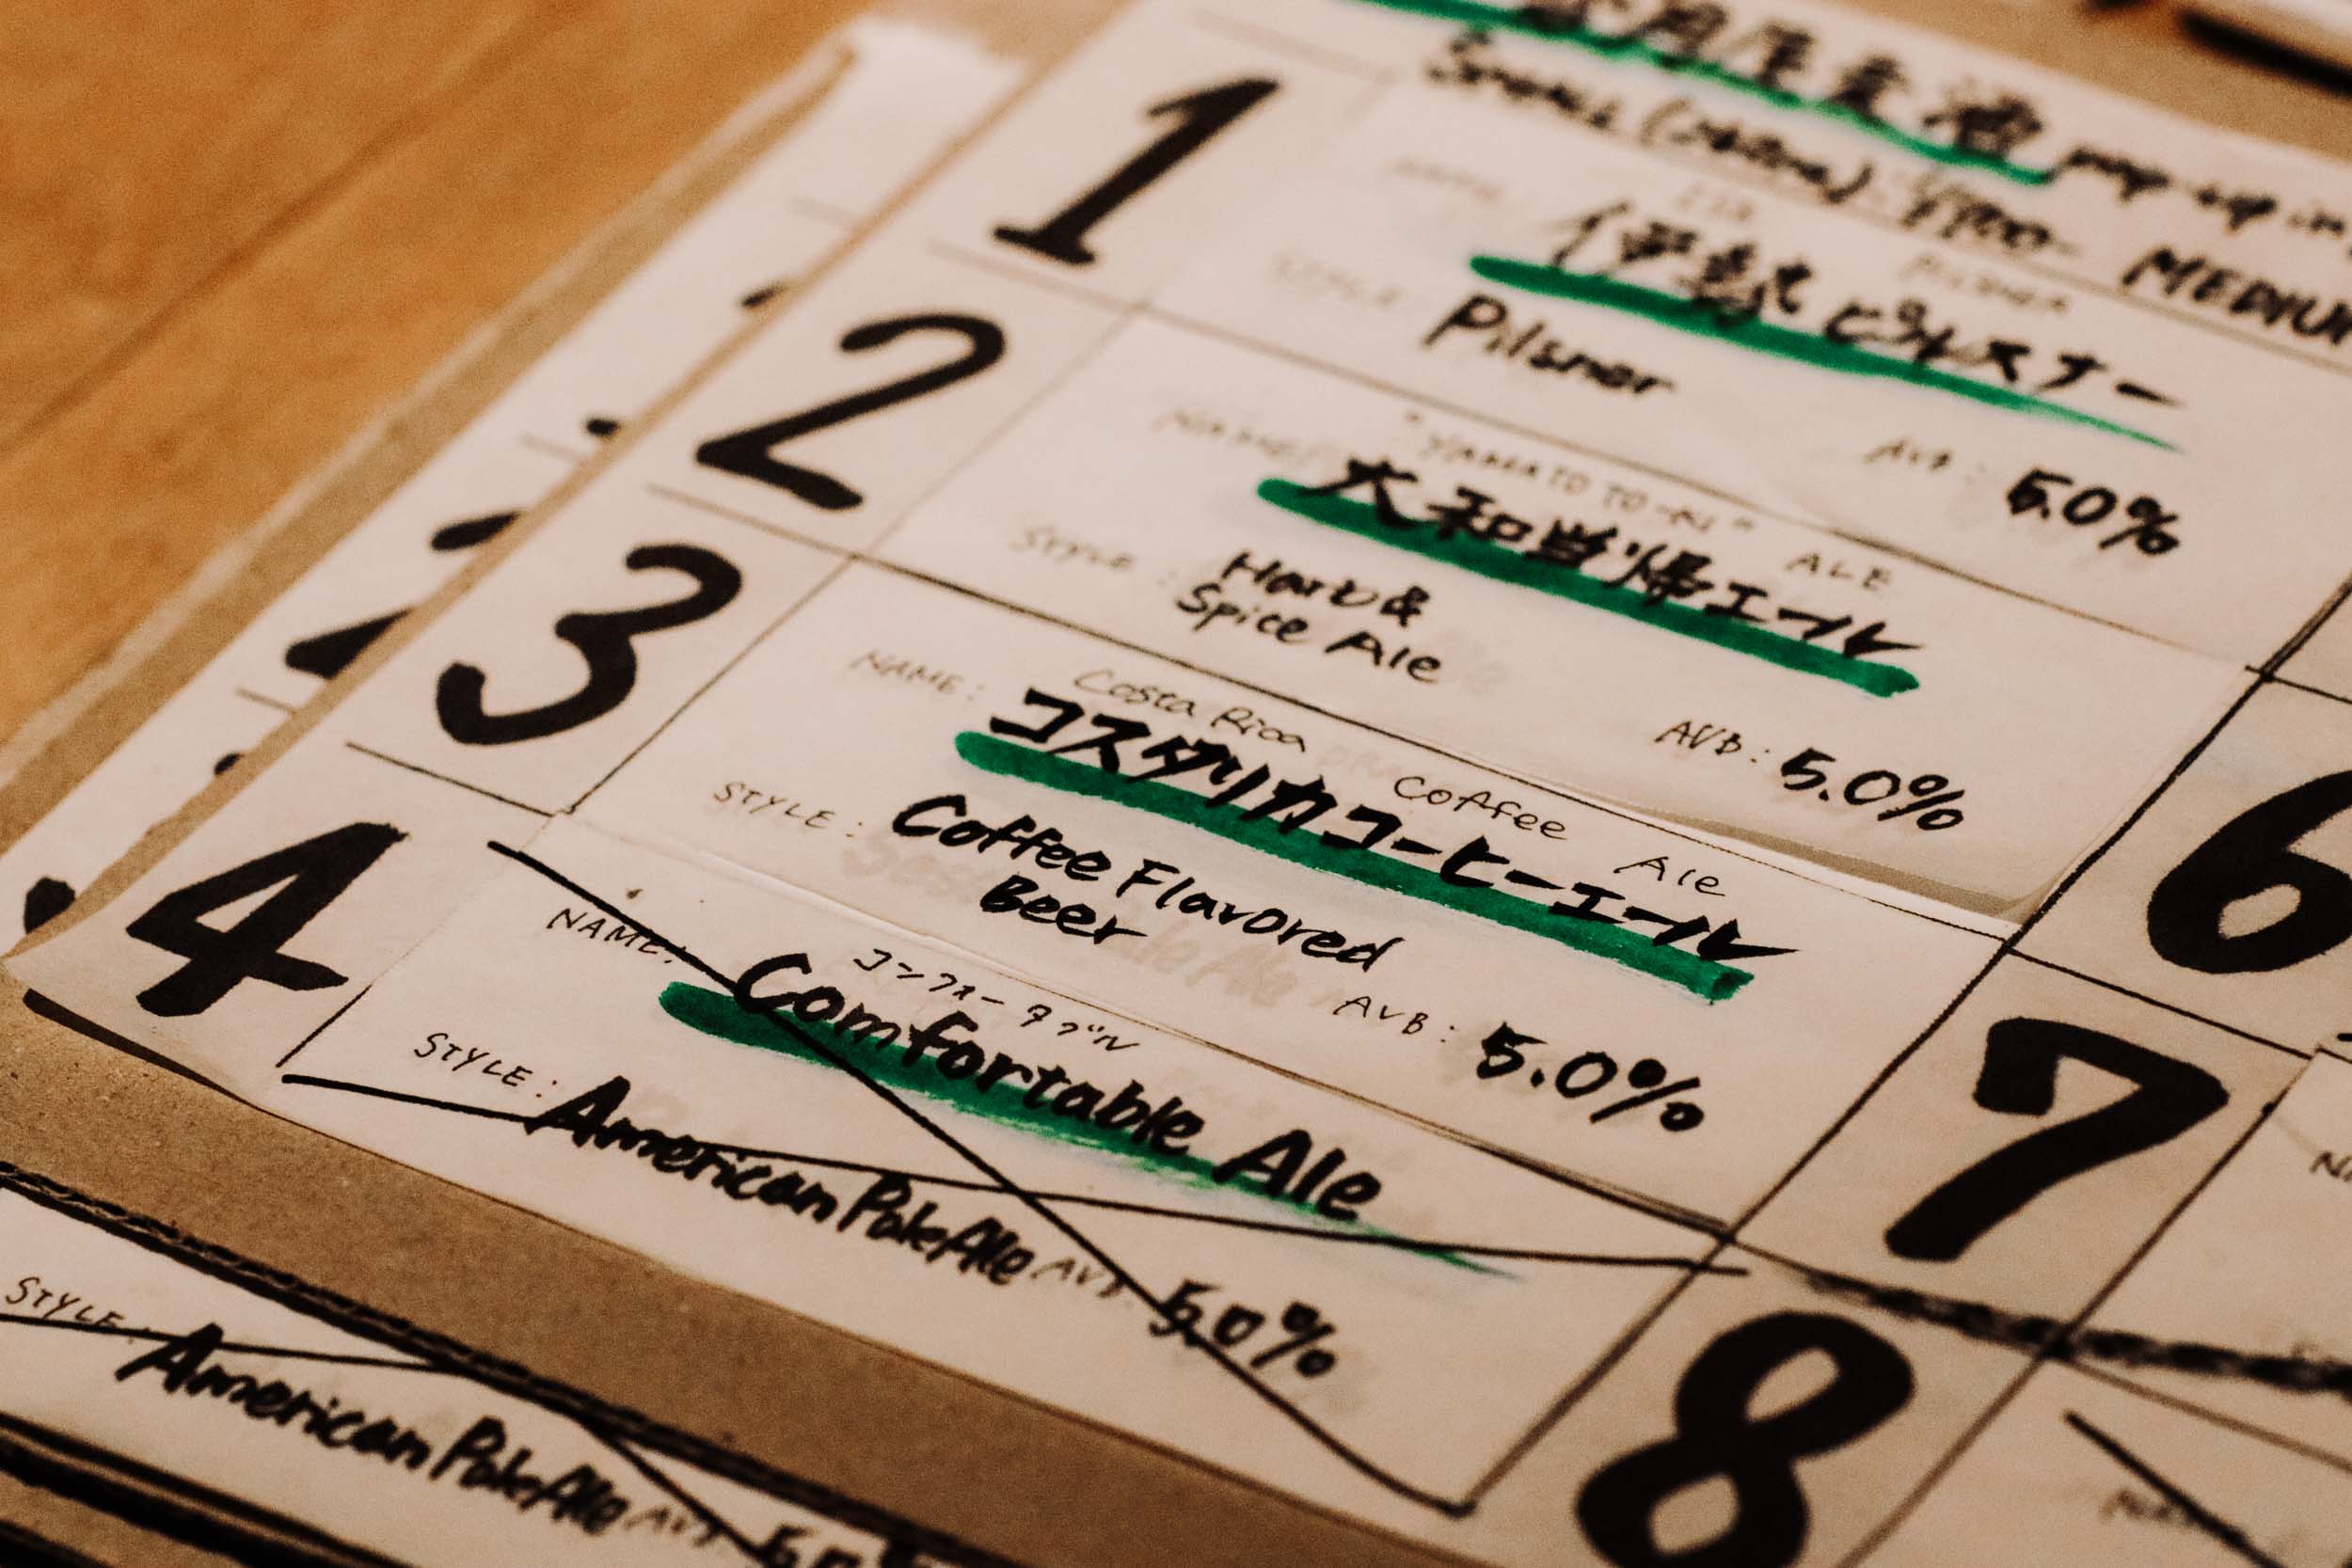 1
伊勢ピルスナー
Pilsner
5.0%
MEDIUM
2
NAME:
"YAMATO TO-KI" ALE
大和当帰エール
STYLE:
Harb &
Spice Ale
AVB: 5.0%
3
NAME:
Costa Rica Coffee Ale
コスタリカコーヒーエール
STYLE:
Coffee Flavored
Beer
AVB: 5.0%
4
NAME:
コンフォータブル
Comfortable Ale
STYLE:
American Pale Ale
5.0%
6
7
8
STYLE:
American Pale Ale